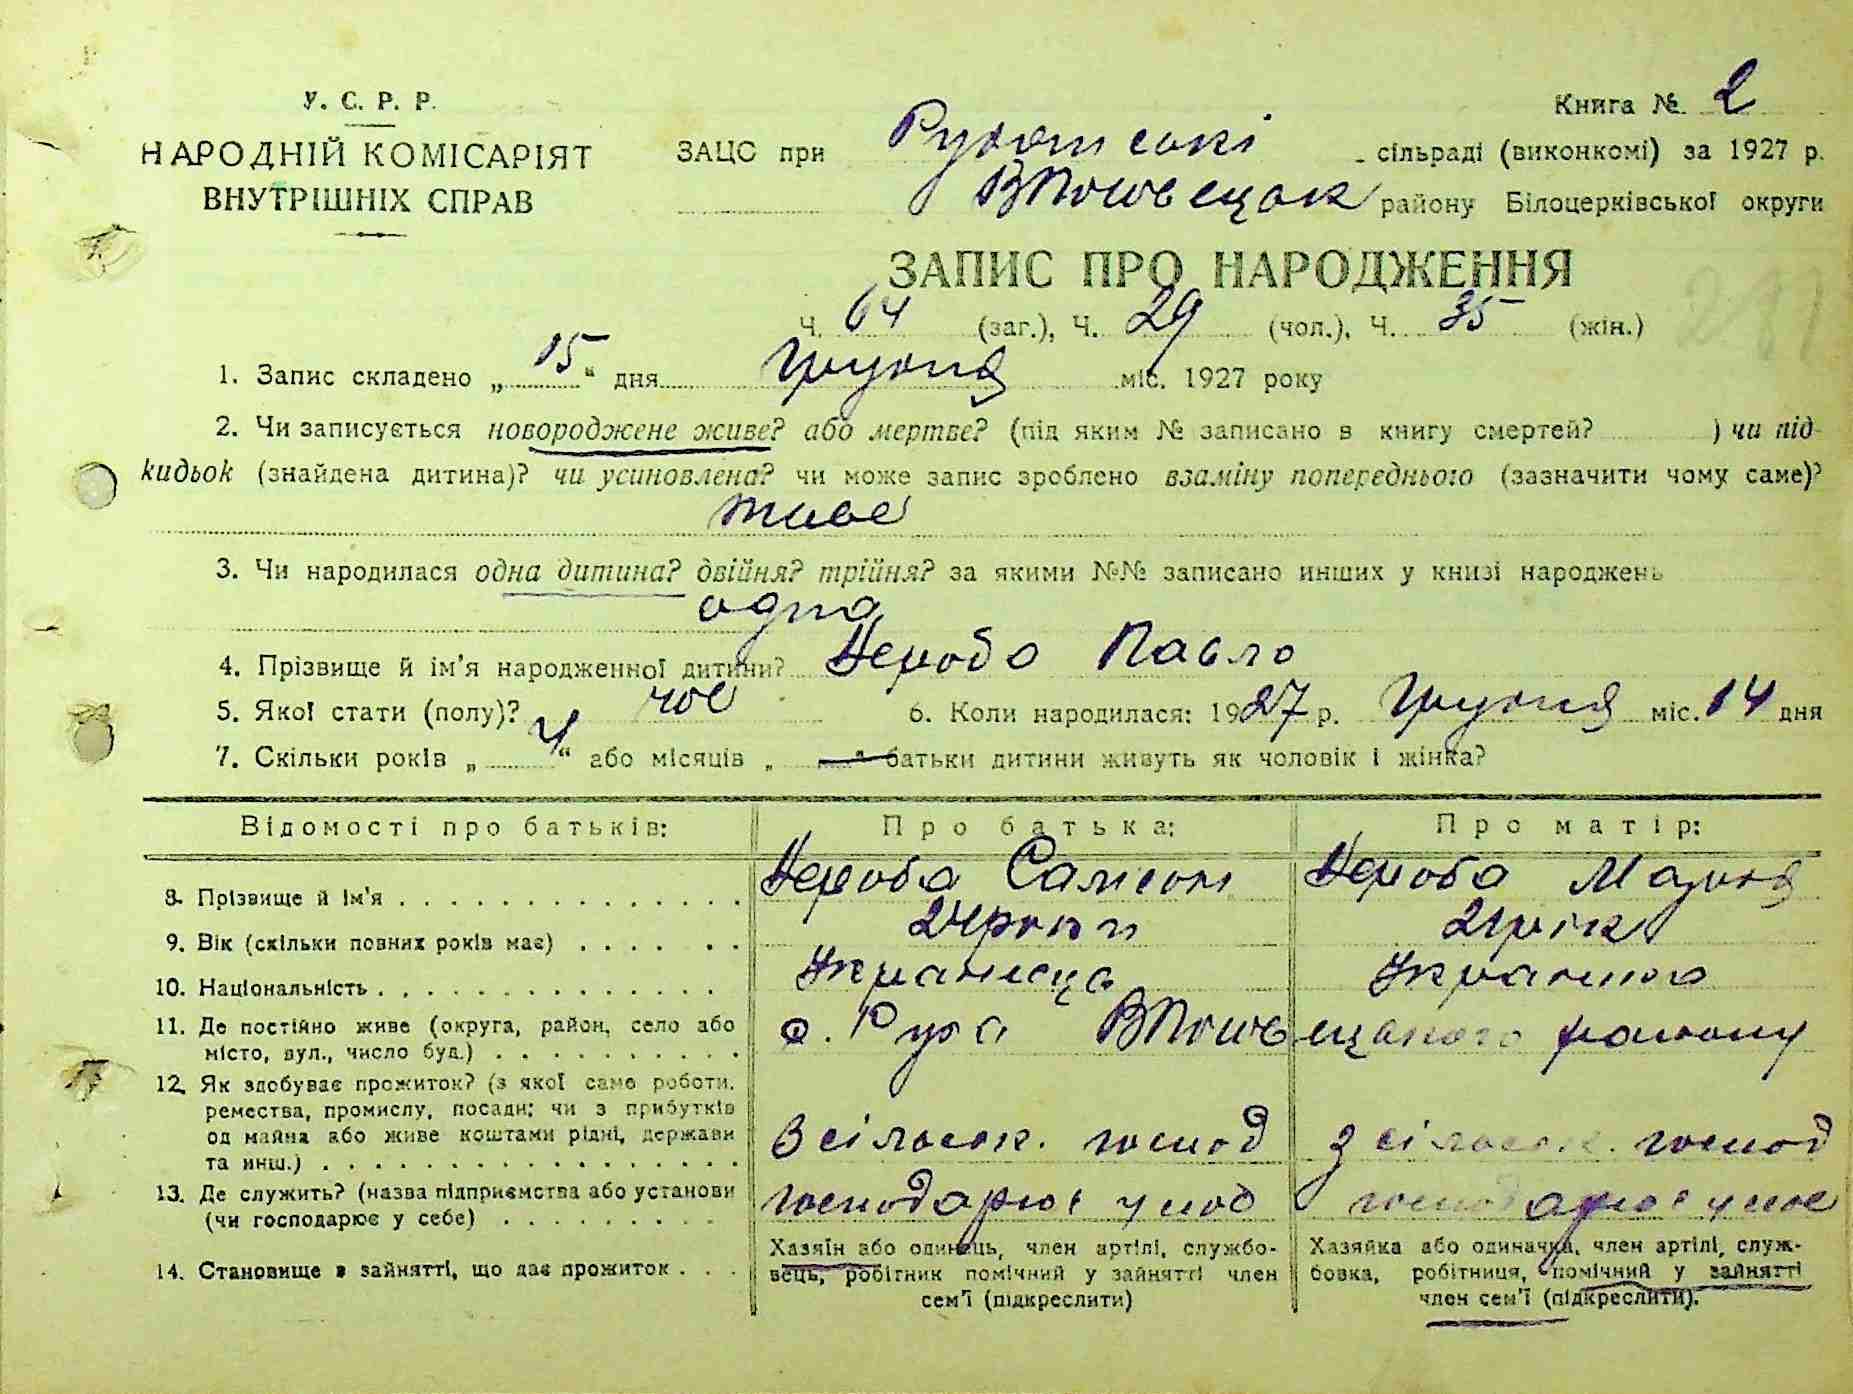 У. С. Р. Р.
НАРОДНІЙ КОМІСАРІЯТ
ВНУТРІШНІХ СПРАВ
Книга № 2
ЗАЦС при сільраді (виконкомі) за 1927 р.
району Білоцерківської округи
ЗАПИС ПРО НАРОДЖЕННЯ
Ч. 64 (заг.), Ч. 29 (чол.), Ч. 35 (жін.)
1. Запис складено „15“ дня Грудня міс. 1927 року
2. Чи записується новороджене живе? або мертве? (під яким № записано в книгу смертей? ) чи під-
кидьок (знайдена дитина)? чи усиновлена? чи може запис зроблено взаміну попереднього (зазначити чому саме)?
живе
3. Чи народилася одна дитина? двійня? трійня? за якими №№ записано инших у книзі народжень
одна
4. Прізвище й ім'я народженної дитини? Павло
5. Якої стати (полу)? чол 6. Коли народилася: 1927 р. Грудня міс. 14 дня
7. Скільки років „4“ або місяців „ “ батьки дитини живуть як чоловік і жінка?
Відомості про батьків: Про батька: Про матір:
8. Прізвище й ім'я Самсон
9. Вік (скільки повних років має) 24 роки 21 рік
10. Національність Українець Українка
11. Де постійно живе (округа, район, село або
місто, вул., число буд.) с. Руда району
12. Як здобуває прожиток? (з якої саме роботи,
ремества, промислу, посади; чи з прибутків
од майна або живе коштами рідні, держави
та инш.) З сільськ. господ З сільськ. господ
13. Де служить? (назва підприємства або установи
(чи господарює у себе) господарює у
14. Становище в зайнятті, що дає прожиток
Хазяїн або одинець, член артілі, службо-
вець, робітник помічний у зайнятті член
сем'ї (підкреслити)
Хазяйка або одиначка, член артілі, служ-
бовка, робітниця, помічний у зайнятті
член сем'ї (підкреслити).